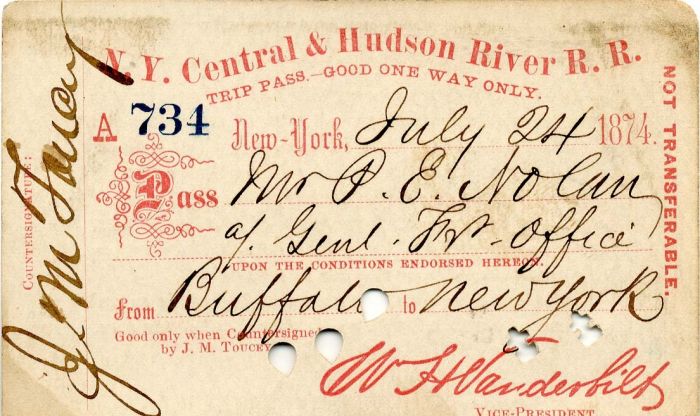 N. Y. Central & Hudson River R. R.
TRIP PASS.—GOOD ONE WAY ONLY.
A 734 New-York, July 24 1874.
Pass Mr P. E. Nolan
of Genl. Frt. Office
UPON THE CONDITIONS ENDORSED HEREON.
From Buffalo to New York
Good only when Countersigned
by J. M. TOUCEY
W H Vanderbilt
VICE-PRESIDENT
NOT TRANSFERABLE.
COUNTERSIGNATURE:
J. M Toucey